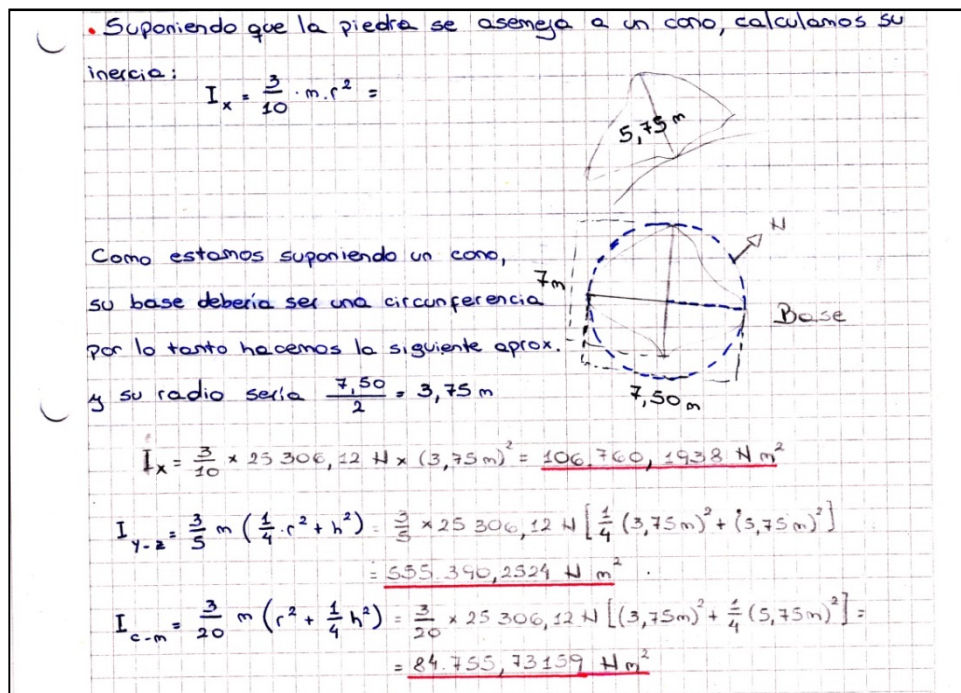 . Suponiendo que la piedra se asemeja a un cono, calculamos su
inercia:
I_x = 3/10 · m · r² =
5,75 m
N
Como estamos suponiendo un cono,
7m
su base debería ser una circunferencia
Base
por lo tanto hacemos la siguiente aprox.
y su radio sería 7,50/2 = 3,75 m
7,50 m
I_x = 3/10 × 25 306,12 N × (3,75m)² = 106.760,1938 N m²
I_y-z = 3/5 m (1/4 · r² + h²) = 3/5 × 25 306,12 N [1/4 (3,75m)² + (5,75m)²]
= 555.390,2524 N m².
I_c-m = 3/20 m (r² + 1/4 h²) = 3/20 × 25 306,12 N [(3,75m)² + 1/4 (5,75m)²] =
= 84.755,73159 Nm²